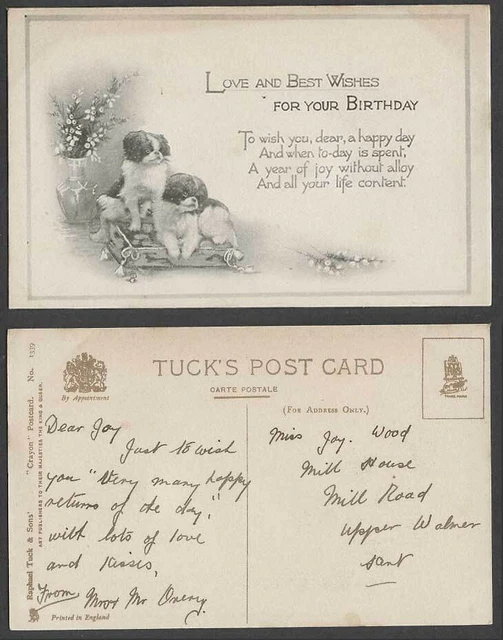 LOVE AND BEST WISHES
FOR YOUR BIRTHDAY
To wish you, dear, a happy day
And when to-day is spent,
A year of joy without alloy
And all your life content.
TUCK'S POST CARD
CARTE POSTALE
(FOR ADDRESS ONLY.)
By Appointment
TRADE MARK
Raphael Tuck & Sons' "Crayon" Postcard. No. 1339
ART PUBLISHERS TO THEIR MAJESTIES THE KING & QUEEN.
Dear Joy
Just to wish
you "Very many happy
returns of the day",
with lots of love
and Kisses,
From Mr
Printed in England
Miss Joy. Wood
Mill House
Mill Road
Upper Walmer